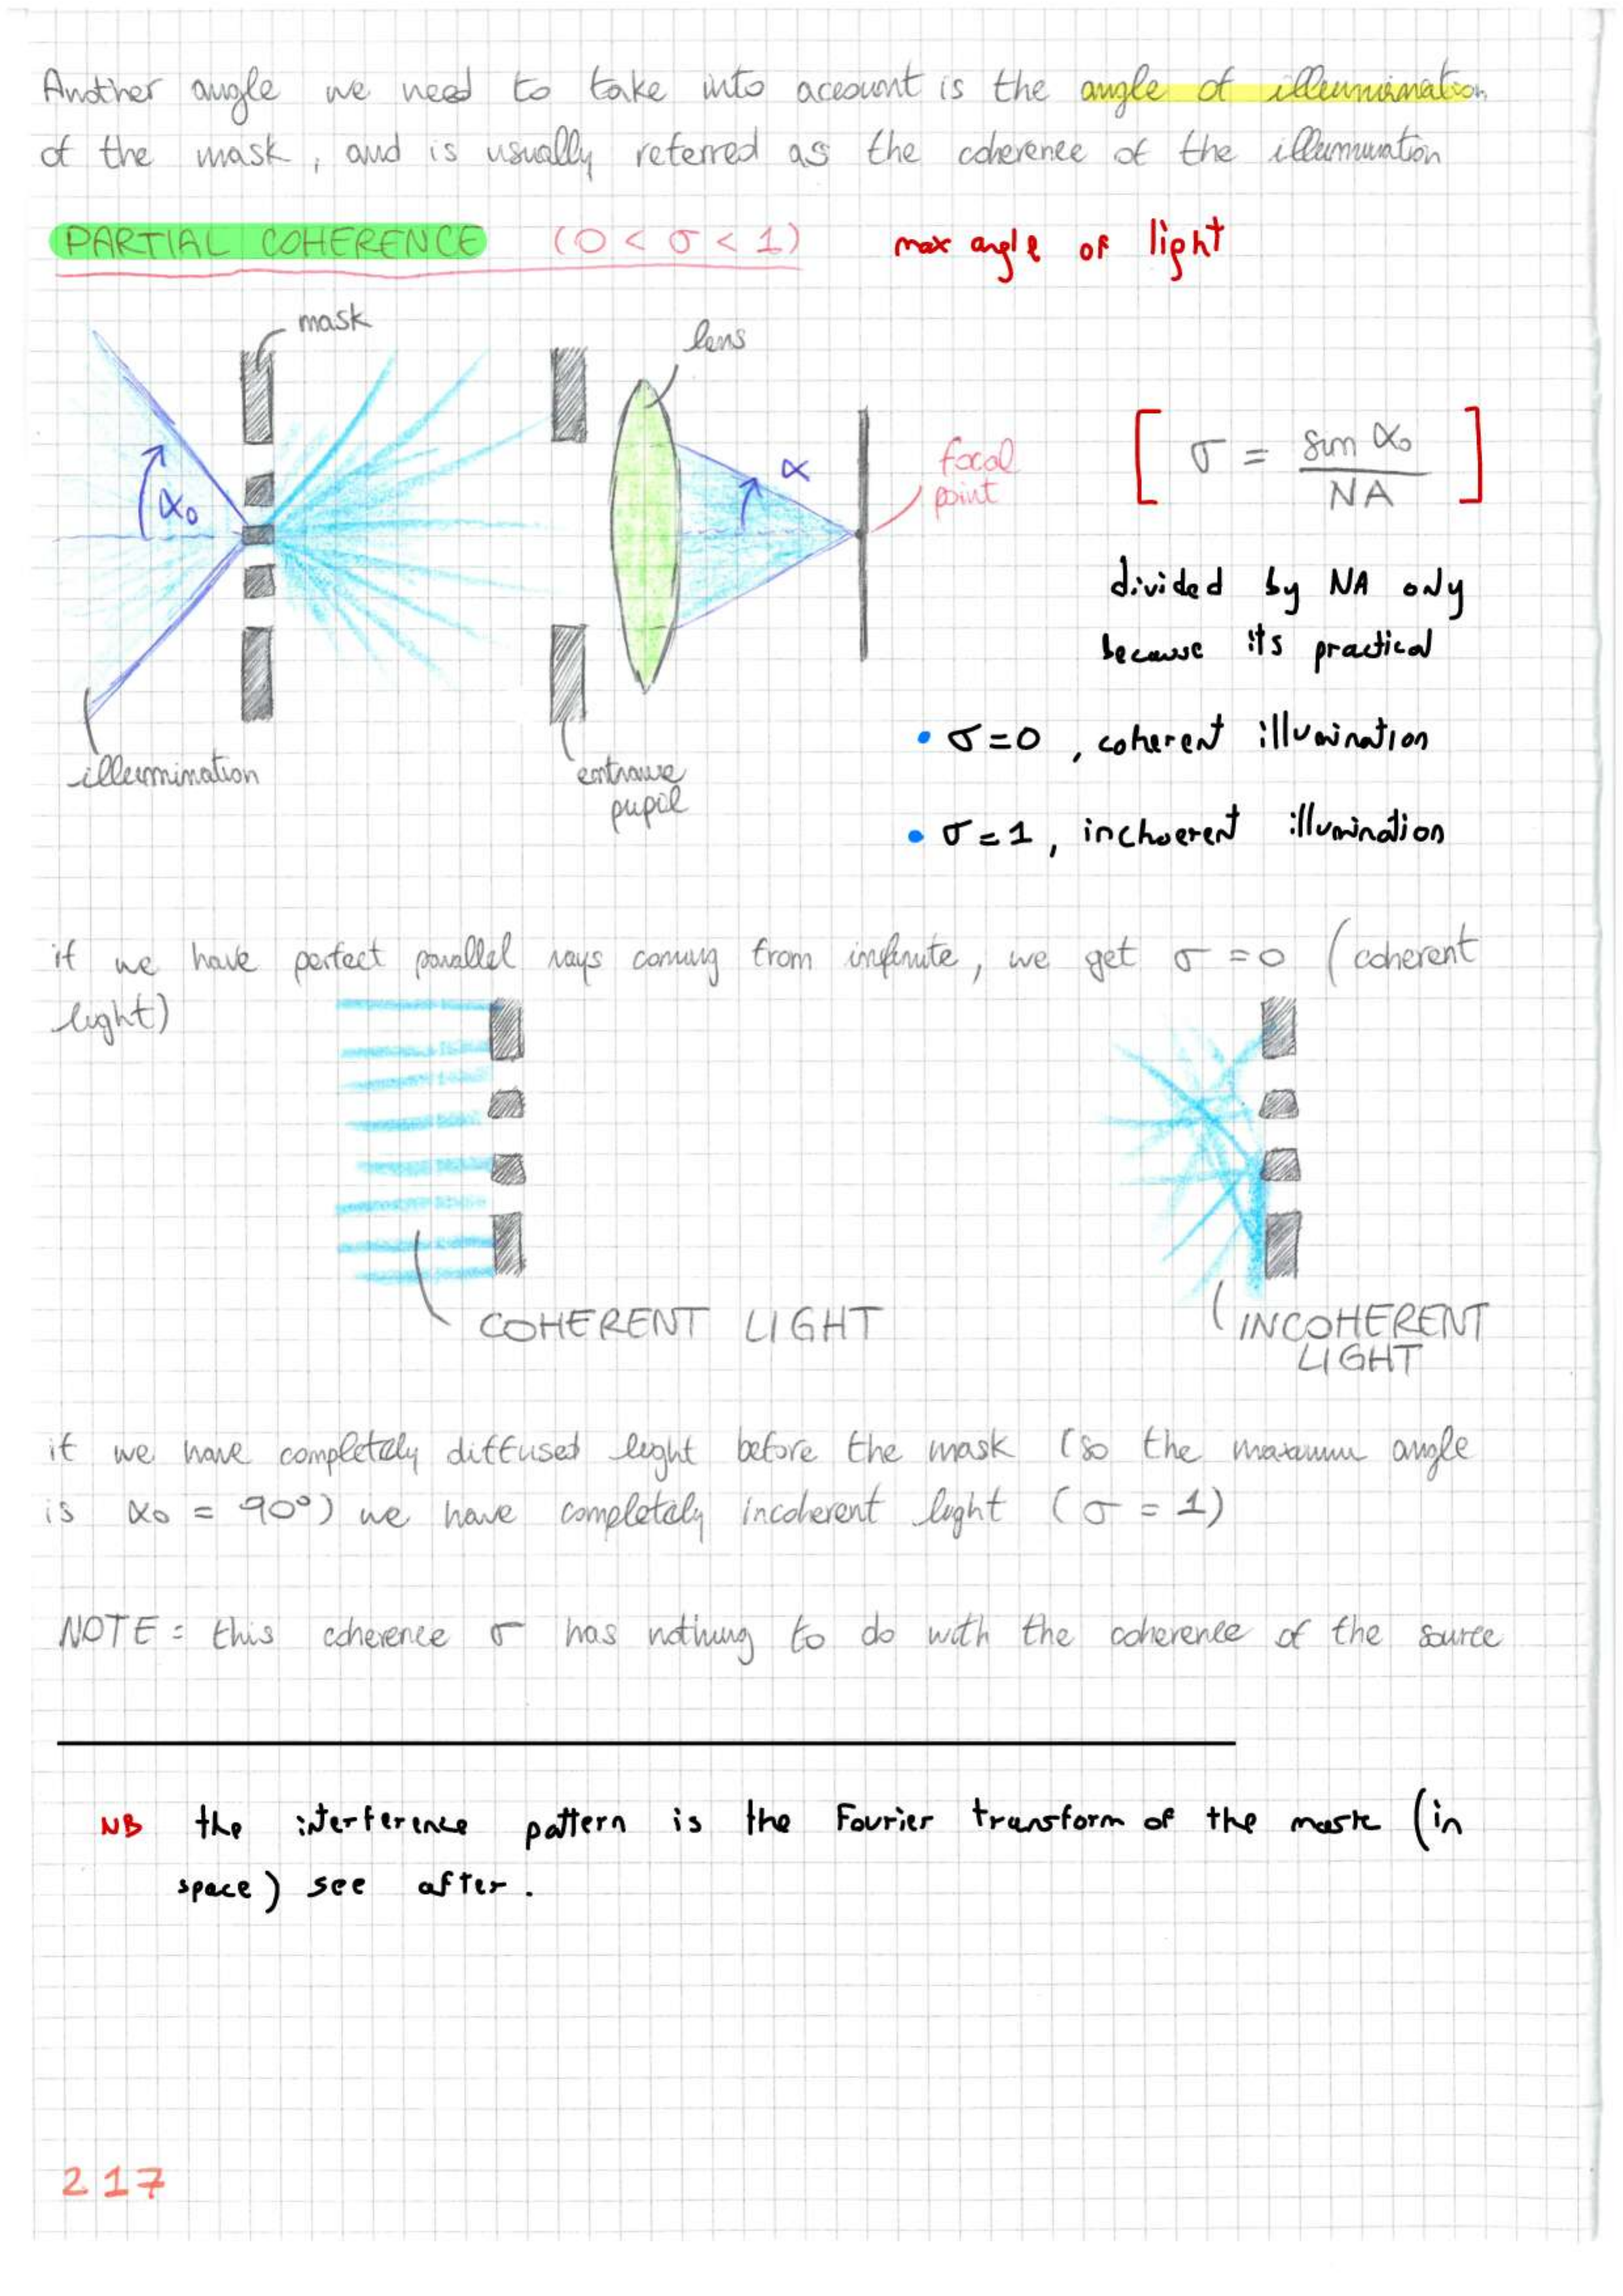 Another angle we need to take into account is the angle of illumination
of the mask, and is usually referred as the coherence of the illumination
PARTIAL COHERENCE (0 < σ < 1) max angle of light
mask
lens
α₀
α
focal
point
[ σ = sin α₀ / NA ]
divided by NA only
because its practical
illumination
entrance
pupil
• σ=0, coherent illumination
• σ=1, inchoerent illumination
if we have perfect parallel rays coming from infinite, we get σ=0 (coherent
light)
COHERENT LIGHT
INCOHERENT
LIGHT
if we have completely diffused light before the mask (so the maximum angle
is α₀ = 90°) we have completely incoherent light (σ = 1)
NOTE: this coherence σ has nothing to do with the coherence of the source
NB the interference pattern is the Fourier transform of the mask (in
space) see after.
217